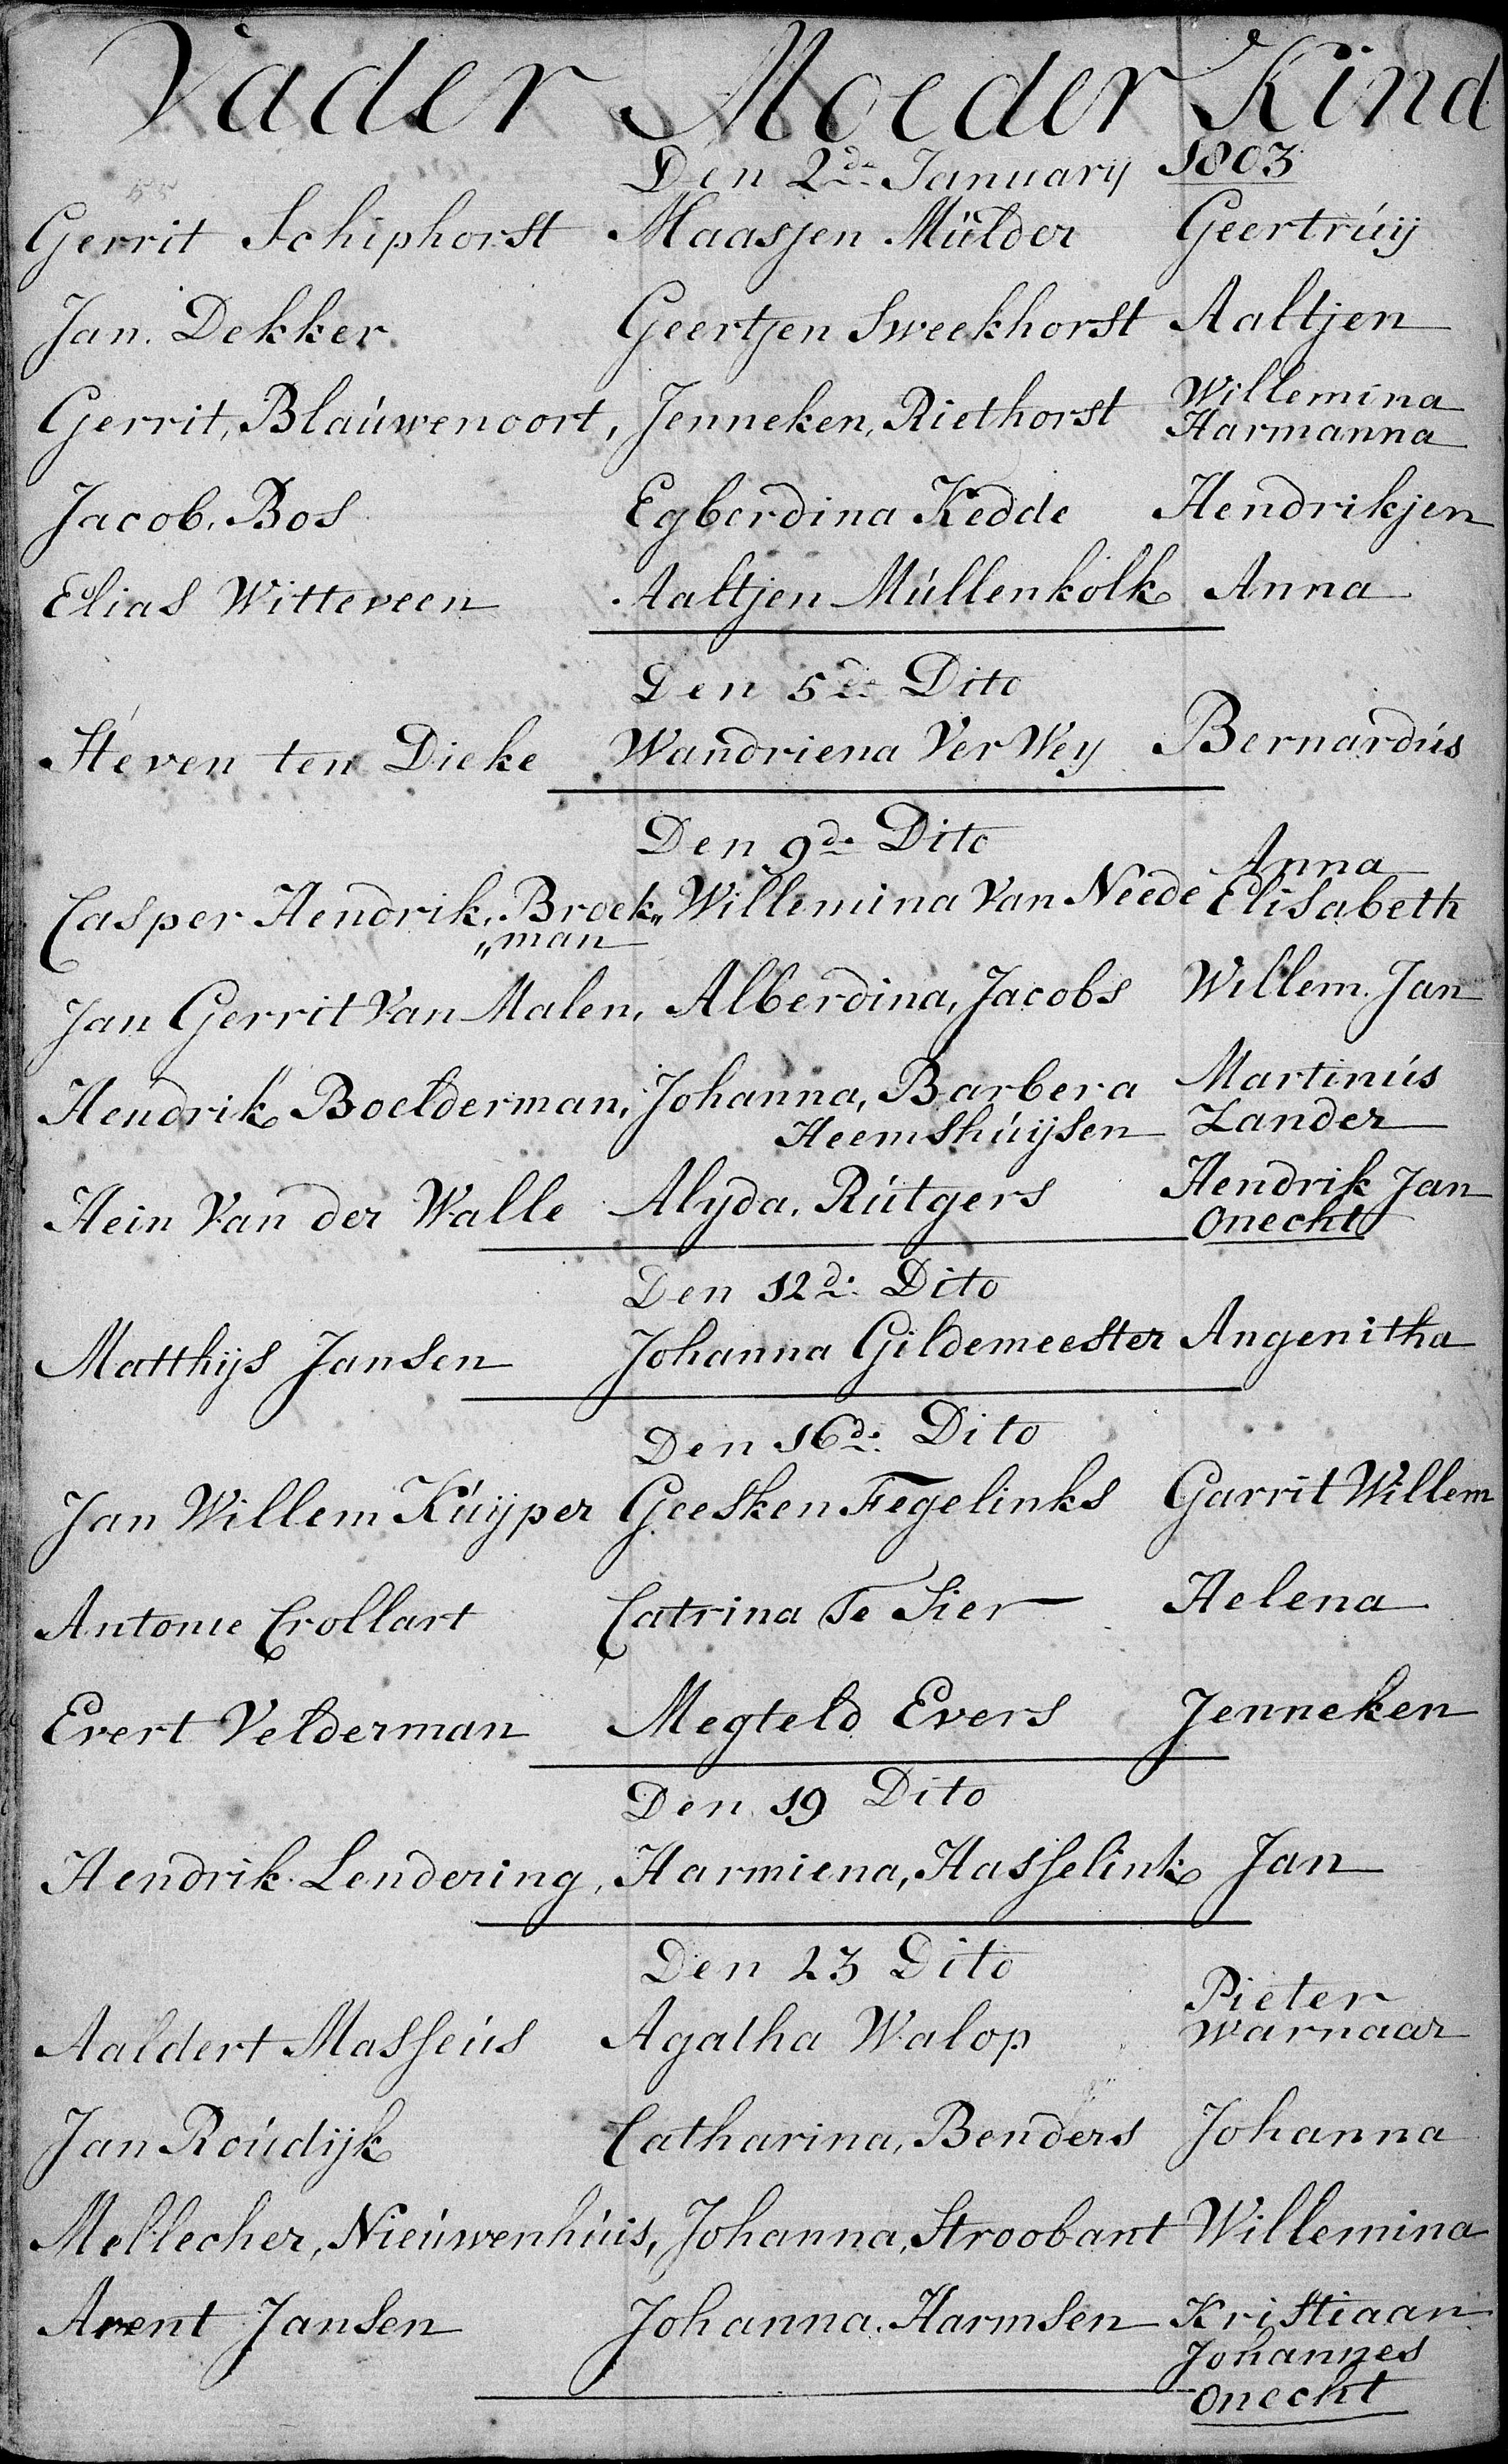 Vader Moeder Kind
Den 2de January 1803
Gerrit Schiphorst Maasjen Mulder Geertruij
Jan. Dekker Geertjen Sweekhorst Aaltjen
Gerrit, Blaúwenoort, Jenneken, Riethorst Willemina
Harmanna
Jacob, Bos Egberdina Kedde Hendrikjen
Elias Witteveen Aaltjen Múllenkolk Anna
Den 5de Dito
Steven ten Dieke Wandriena Ver Weij Bernardús
Den 9de Dito
Anna
Casper Hendrik, Broek„ Willemina Van Neede Elisabeth
„man
Jan Gerrit Van Malen, Alberdina, Jacobs Willem. Jan
Hendrik Boelderman, Johanna, Barbera Martinús
Heemshúijsen Zander
Hein Van der Walle Alyda, Rútgers Hendrik Jan
Onecht
Den 12de Dito
Matthijs Jansen Johanna Gildemeester Angenitha
Den 16de Dito
Jan Willem Kúijper Geesken Fegelinks Garrit Willem
Antonie Crollart Catrina Te Sier Helena
Evert Velderman Megteld Evers Jenneken
Den 19 Dito
Hendrik Lendering, Harmiena, Hasselink Jan
Den 23 Dito
Pieter
Aaldert Masseús Agatha Walop Warnaar
Jan Roúdijk Catharina, Benders Johanna
Mellecher, Nieúwenhúis, Johanna, Stroobant Willemina
Arent Jansen Johanna. Harmsen Kristiaan
Johannes
Onecht